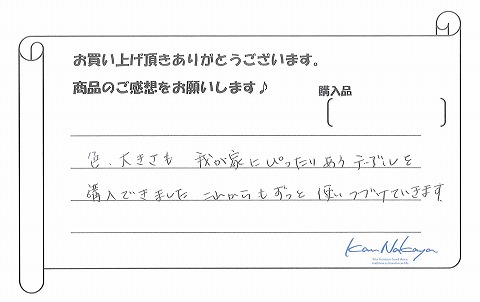 お買い上げ頂きありがとうございます。
商品のご感想をお願いします♪
購入品
色、大きさも 我が家にぴったりあうテーブルを
購入できました これからもずっと使いつづけていきます
Kan Nakaya